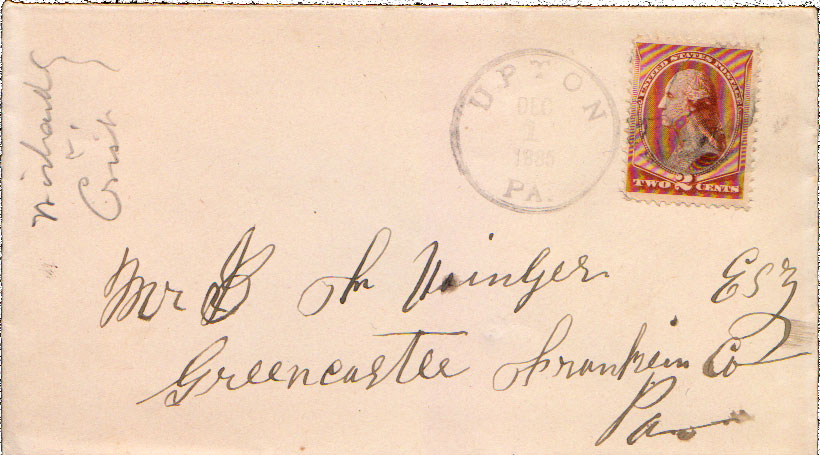 UPTON
DEC
1
1885
PA.
UNITED STATES POSTAGE
TWO 2 CENTS
Mr B Winger Esq
Greencastle Franklin Co
Pa